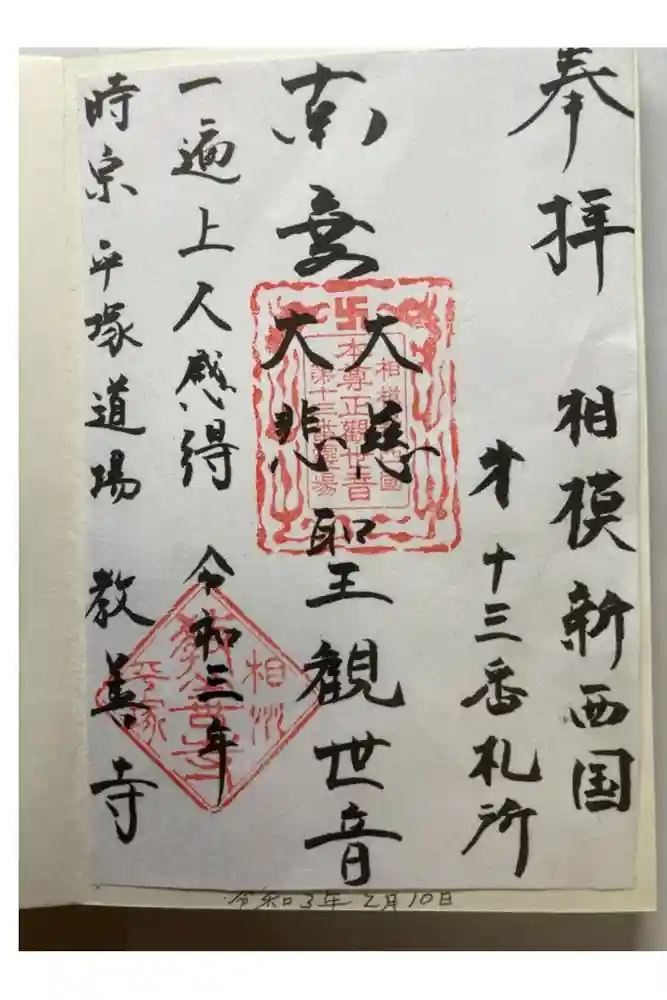 奉拝
相模新西国
才十三番札所
南無
大慈
大悲
聖観世音
一遍上人感得 令和三年
時宗 平塚道場 教善寺
卍
本尊正觀世音
第十三番霊場
相州
教善寺
平塚
令和3年2月10日